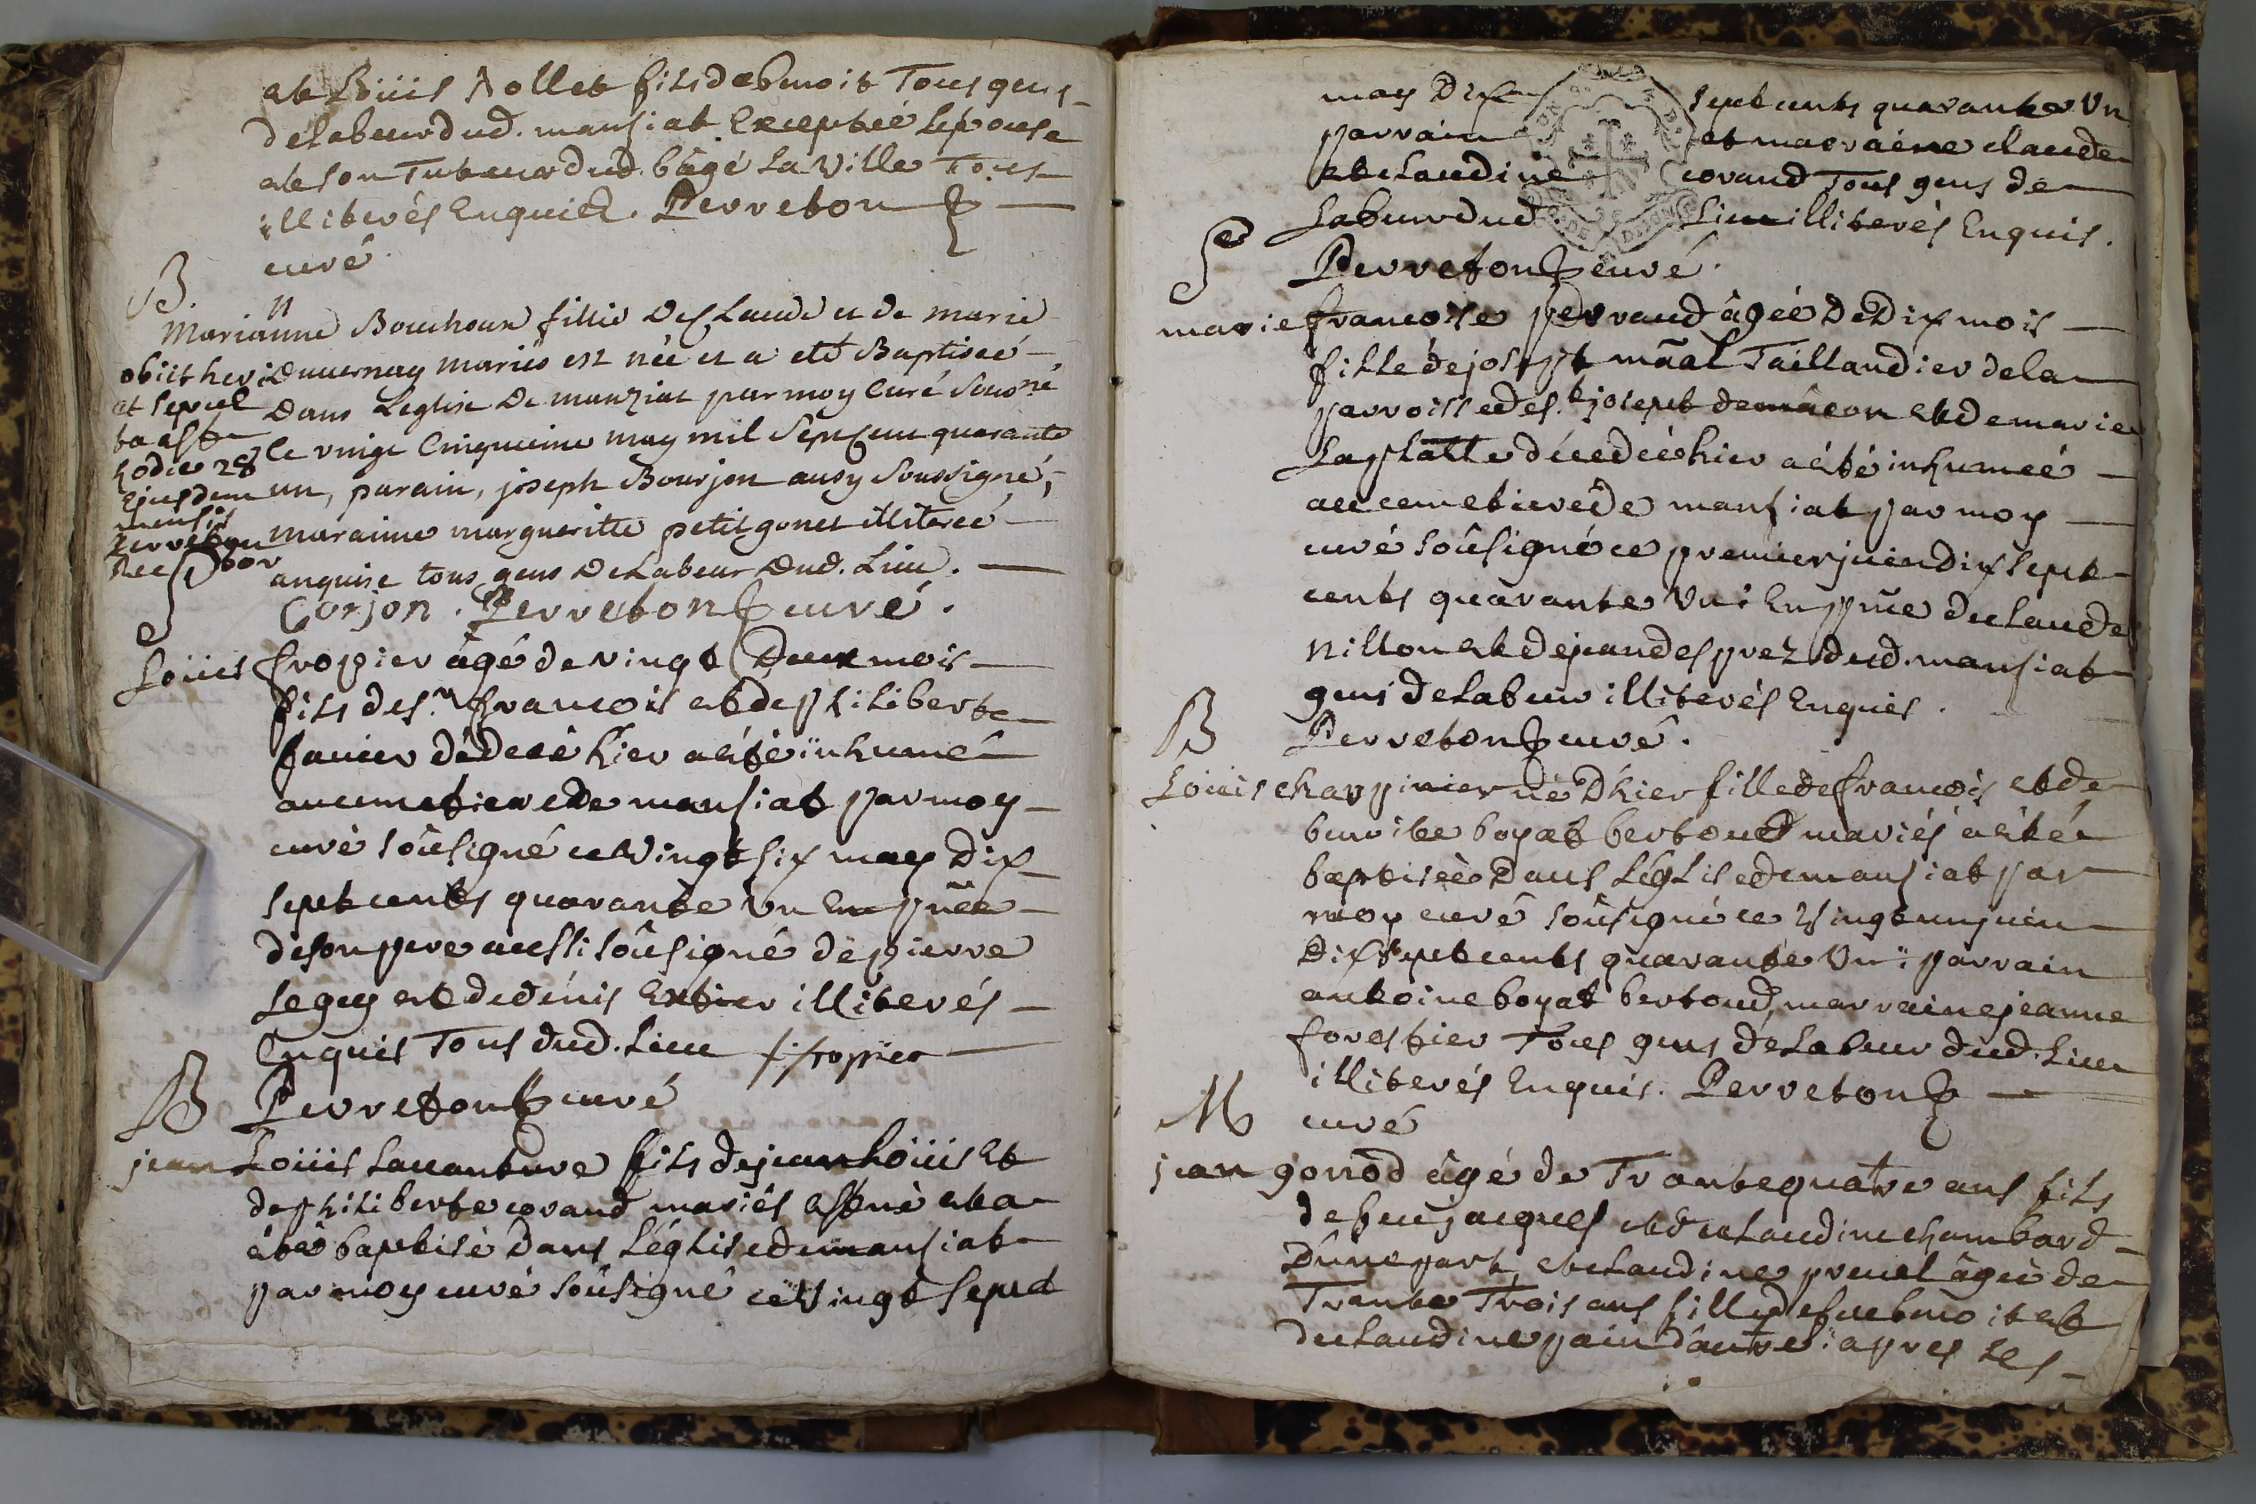 et Loüis Rollet fils de bnoit Tous gens
de labeur dud. mansiat Exceptée lépouse
et son Tuteur dud. bâgé la ville Tous
illiterés Enquis. Perreton
curé
B.
Marianne Bouchoux fillie de Claude et de marie
Duvernay mariés est née et a eté Baptiseé
Dans Leglise De manziat par moy Curé Sousné
Le vingt Cinquieme may mil Sept Cent quarante
un, parain, joseph Bourjon ausy Soussigné,
maraine margueritte petitgonet illitereé
anquise tous gens De Labeur Dud. Lieu.
Corjon. Perreton curé.
obiit heri
et sepul
ta est
hodie 28
Ejusdem
mensis
Perreton
Rector
S
Loüis fropier âgé de vingt Deux mois
fils de s.r francois et de philiberte
favier décedé hier a été inhumé
au cimetiere de mansiat par moy
curé soûsigné ce Vingt six may Dix
sept cents quarante Vn En pñce
de son pere aussi soûsigné de pierre
leguy et de denis Extier illiterés
Enquis Tous dud. Lieu f. fropier
Perreton curé
B
jean Loüis lavanture fils de jean Loüis Et
de philiberte corand mariés est né et a
été baptisé dans Léglise de mansiat
par moy curé soûsigné ce Vingt sept
may Dix sept cents quarante Vn
parrain et marraine claude
et claudine corand Tous gens de
labeur dud. Lieu illiterés Enquis.
Perreton curé.
S
marie francoise perraud âgée de Dix mois
fille de josept mãal Taillandier de la
parroisse de s.t josept de mâcon et de marie
laplatte décedée hier a été inhumeé
au cemetiere de mansiat par moy
curé soûsigné ce premier juin dix sept
cents quarante Vn: En pñce de claude
nillon et de jean desprez dud. mansiat
gens de labeur illiterés Enquis.
Perreton curé.
B
Loüis charpinier né D'hier fille de francois et de
benoite boyat bertoud mariés a été
baptisée Dans Léglise de mansiat par
moy curé soûsigné ce Vingt un juin
Dix sept cents quarante Vn: parrain
antoine boyat bertoud, marraine jeanne
forestier Tous gens de labeur dud. Lieu
illiterés Enquis. Perreton
curé
M
jean gonod âgé de Trante quatre ans fils
de feu jacques et de claudine chambard
D'une part, et claudine prevel âgée de
Trante Trois ans fille de feu bnoit et
de claudine pain d'autre: apres les